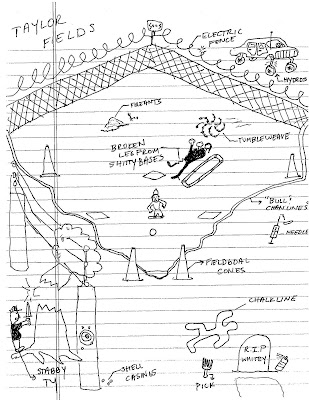 TAYLOR
FIELDS
ELECTRIC
FENCE
HYDROS
FIREANTS
TUMBLEWEAVE
BROKEN
LEG FROM
SHITTY BASES
"BULL"
CHAIN LINES
NEEDLE
FIELDGOAL
CONES
CHALKLINE
STABBY
TY
SHELL
CASINGS
PICK
R.I.P
WHITEY